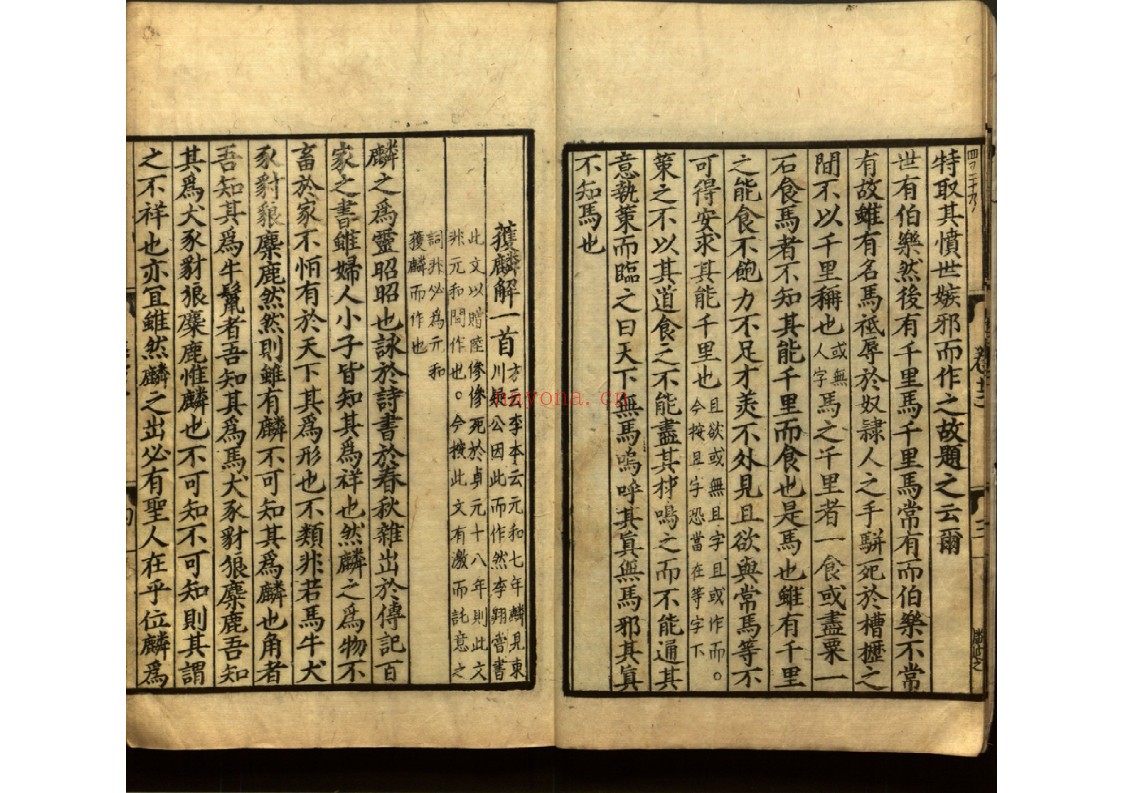 四百二十八
特取其憤世嫉邪而作之故題之云爾
世有伯樂然後有千里馬千里馬常有而伯樂不常
有故雖有名馬祗辱於奴隸人之手駢死於槽櫪之
間不以千里稱也或無人字馬之千里者一食或盡粟一
石食馬者不知其能千里而食也是馬也雖有千里
之能食不飽力不足才美不外見且欲與常馬等不
可得安求其能千里也且欲或無且字且或作而。今按且字恐當在等字下
策之不以其道食之不能盡其材鳴之而不能通其
意執策而臨之曰天下無馬嗚呼其真無馬邪其真
不知馬也
獲麟解一首方云李本云元和七年麟見東川疑公因此而作然李翱嘗書
此文以贈陸傪傪死於貞元十八年則此文非元和間作也。今按此文有激而託意之
詞非必為元和獲麟而作也
麟之為靈昭昭也詠於詩書於春秋雜出於傳記百
家之書雖婦人小子皆知其為祥也然麟之為物不
畜於家不恒有於天下其為形也不類非若馬牛犬
豕豺狼麋鹿然然則雖有麟不可知其為麟也角者
吾知其為牛鬣者吾知其為馬犬豕豺狼麋鹿吾知
其為犬豕豺狼麋鹿惟麟也不可知不可知則其謂
之不祥也亦宜雖然麟之出必有聖人在乎位麟為
nayona.cn